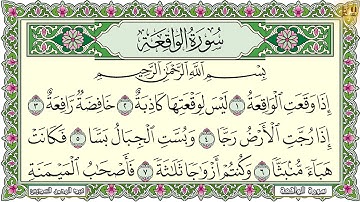 سُورَةُ الوَاقِعَةِ
بِسْمِ اللَّهِ الرَّحْمَٰنِ الرَّحِيمِ
إِذَا وَقَعَتِ الْوَاقِعَةُ ١ لَيْسَ لِوَقْعَتِهَا كَاذِبَةٌ ٢ خَافِضَةٌ رَّافِعَةٌ ٣
إِذَا رُجَّتِ الْأَرْضُ رَجًّا ٤ وَبُسَّتِ الْجِبَالُ بَسًّا ٥ فَكَانَتْ
هَبَاءً مُّنۢبَثًّا ٦ وَكُنتُمْ أَزْوَاجًا ثَلَاثَةً ٧ فَأَصْحَابُ الْمَيْمَنَةِ
سورة الواقعة